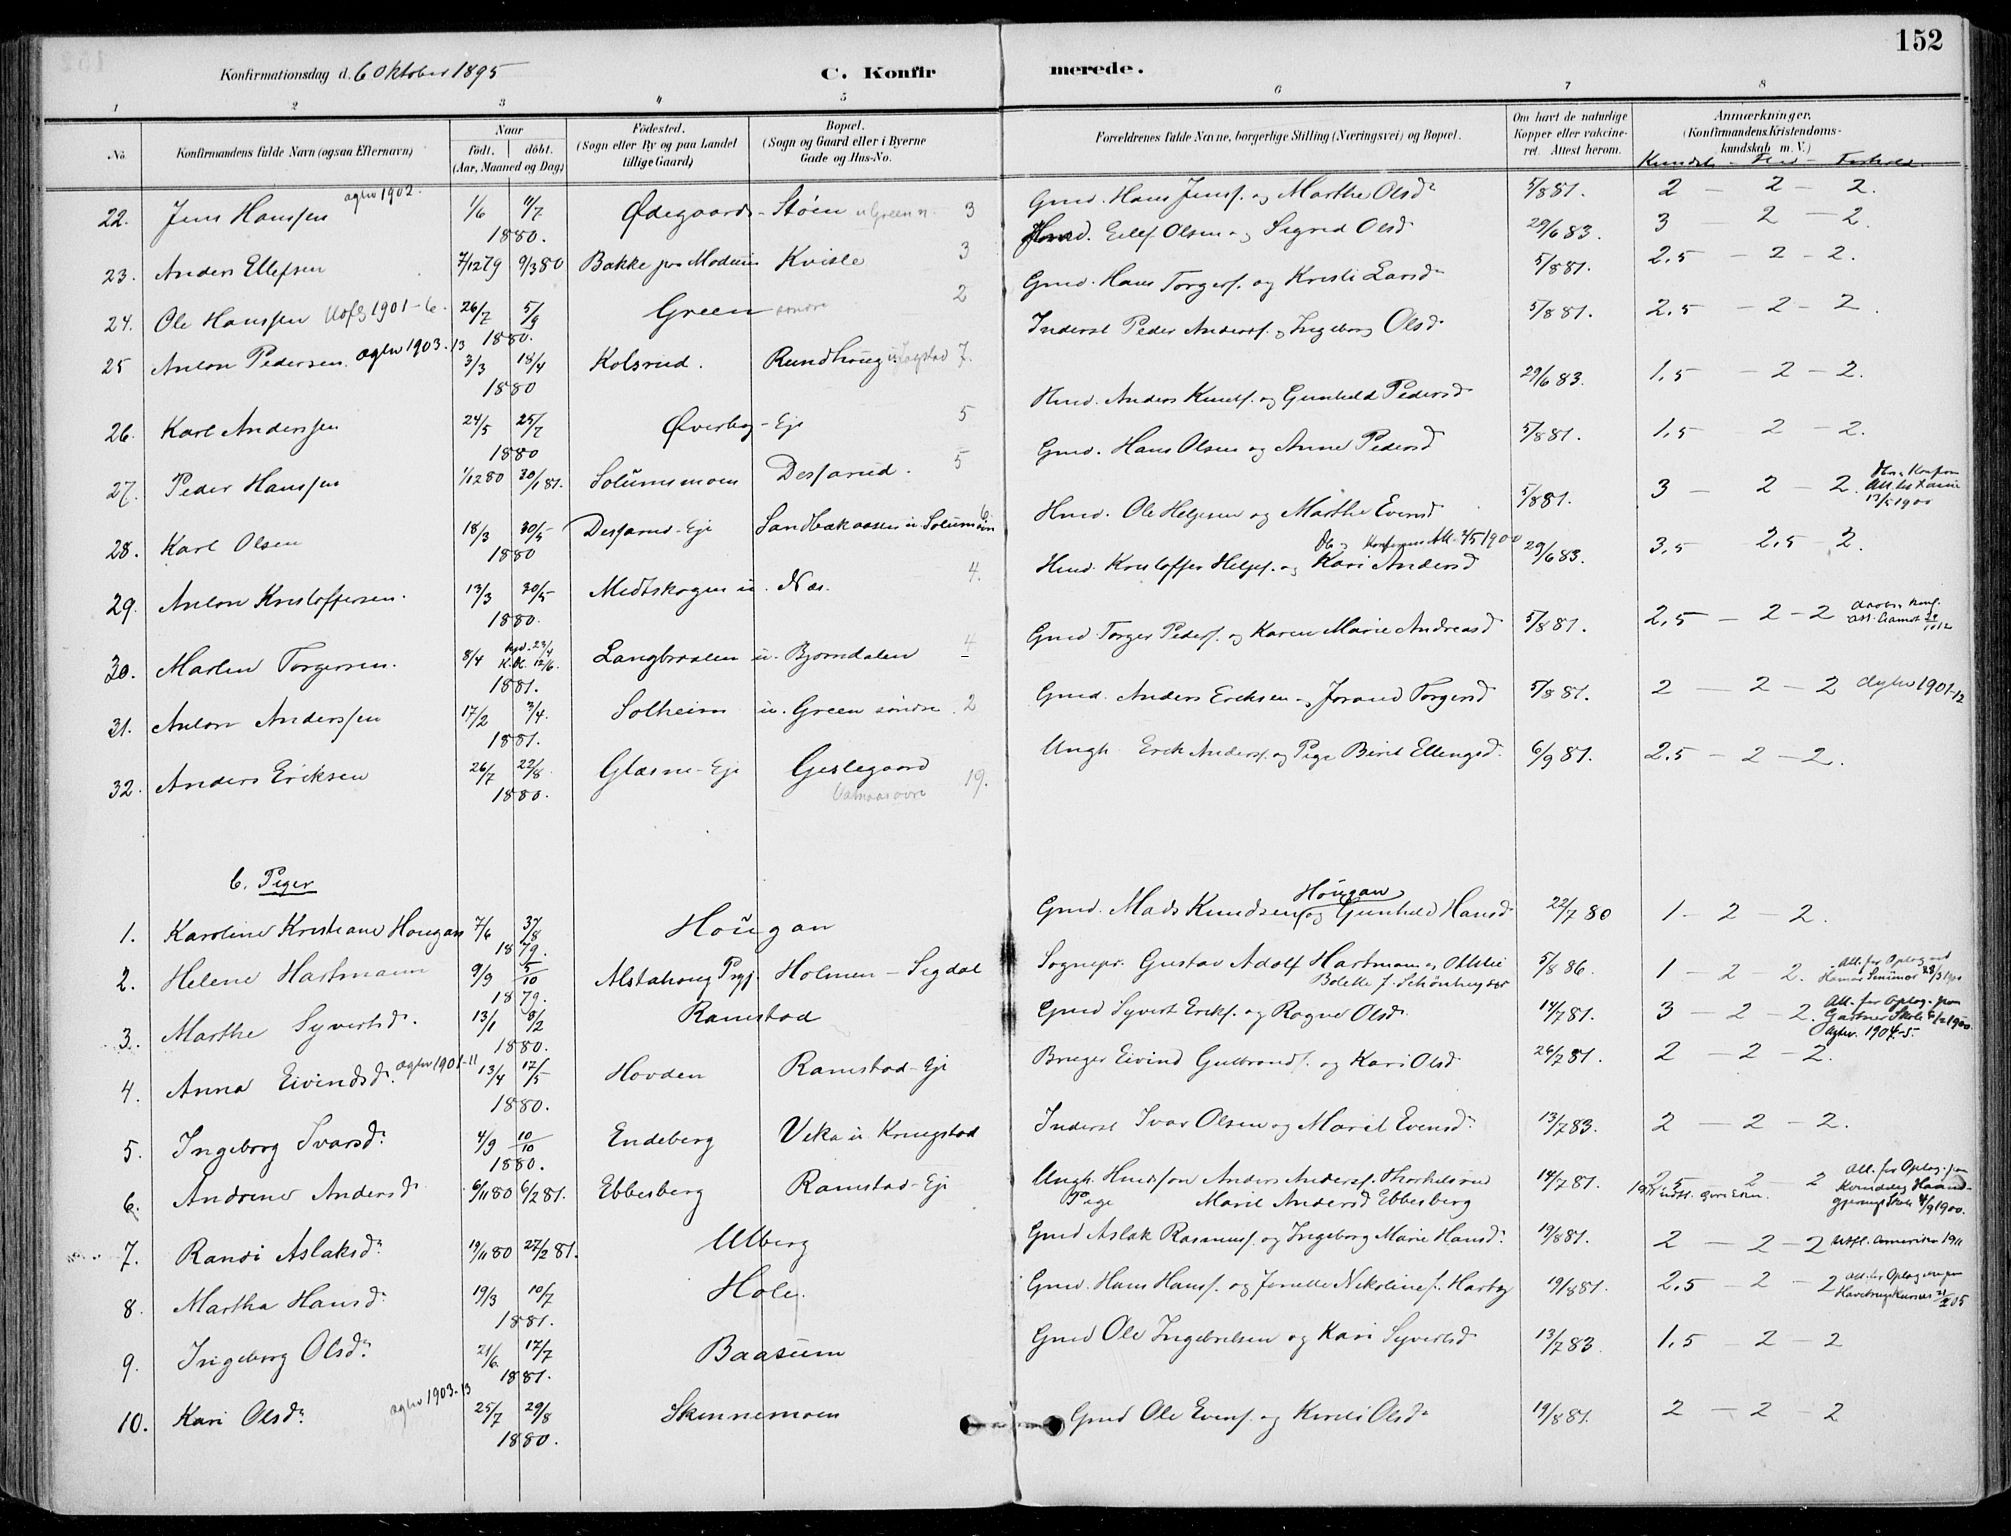 152
Konfirmationsdag d. 6 Oktober 1895
C. Konfirmerede.
1 2 3 4 5 6 7 8
No
Konfirmandens fulde Navn (ogsaa Efternavn)
Naar
födt. döbt.
(Aar, Maaned og Dag)
Födested.
(Sogn eller By og paa Landet
tillige Gaard)
Bopæl.
(Sogn og Gaard eller i Byerne
Gade og Hus-No.
Forældrenes fulde Navne, borgerlige Stilling (Næringsvei) og Bopæl.
Om havt de naturlige
Kopper eller vakcine-
ret. Attest herom.
Anmærkninger.
(Konfirmandens Kristendoms-
kundskab m. V.)
Kundsk. - Flid - Forhold.
22. Jens Hanssen 1/6 11/7 1880. Ødegaards- Støen u Green n. 3 Gmd. Hans Jensf. og Marthe Olsdr 5/8 81. 2 - 2 - 2.
23. Anders Ellefsen 7/12 79 9/3 80 Bakke paa Modum Kvisle 3 Ellef Olsen og Sigrid Olsd 29/6 83. 3 - 2 - 2.
24. Ole Hanssen 1901-6. 26/7 5/9 1880. Green søndre 2 Gmd. Hans Torgersf. og Kristi Larsdr 5/8 81. 2.5 - 2 - 2.
25 Anton Pedersen. aghv 1903-13 3/3 18/4 1880 Kolsrud. Rundhoug u. 7. Inderst Peder Andersf. og Ingeborg Olsd 5/8 81. 2.5 - 2 - 2.
26. Karl Anderssen 24/5 25/7 1880 Øverby - Eje 5 Hmd. Anders Knudsf. og Gunhild Pedersd 29/6 83. 1.5 - 2 - 2.
27. Peder Hanssen 1/12 80 30/1 81. Solumsmoen Desarud. 5 Gmd. Hans Olsen og Anne Pedersd 5/8 81. 1.5 - 2 - 2.
28. Karl Olsen 18/3 30/5 1880 Desarud-Eje Sandbækaasen u. Solumsmoen 6. Hmd. Ole Helgesen og Marthe Evensd 5/8 81. 3 - 2 - 2.
29. Anton Kristoffersen. 13/3 30/5 1880. Medtskogen u. Næs. 4. Hmd. Kristoffer Helgesf. og Kari Andersd 29/6 83. 3.5 2.5 - 2.
30. Martin Torgersen. 8/4 12/6. 1881. Langbraaten u. Bjørndalen 4 Gmd. Torger Pedersf. og Karen Marie Andreasd 5/8 81. 2.5 - 2 - 2
31. Anton Anderssen 17/2 3/4. 1881. Solheim u. Green søndre 2 Gmd. Anders Eriksen og Jorand Torgersd 5/8 81. 2 - 2 - 2 aghv 1901-12
32. Anders Eriksen 26/7 22/8. 1880. Glæsne-Eje Geslegaard 19. Ungk. Erik Andersf. og Pige Berit Ellingsd. 6/9 81. 2.5 - 2 - 2.
b. Piger
1. Karoline Kristiane Hougan 7/6 3/8 1879. Hougan Gmd. Mads Knudsen Hougan og Gunhild Hansdr 22/7 80 1 - 2 - 2.
2. Helene Hartmann 9/9 5/10 1879. Alstahoug Prgj. Holmen - Sigdal Sognepr. Gustav Adolf Hartmann og Ottilie Bolette f. Schönheyder 5/8 86. 1 - 2 2.
3. Marthe Syvertsd. 13/1 8/2 1880. Ramstad Gmd Syvert Eriksf. og Ragne Olsd. 14/7 81. 3 - 2 - 2. Att. for Optag. paa Gartner Skole 1900. aghv. 1904-5.
4. Anna Eivindsdr. aghv 1901-11 13/4 17/5 1880. Hovden Ramstad-Eje Bruger Eivind Gulbrandsf. og Kari Olsd. 26/7 81. 2 - 2 - 2.
5. Ingeborg Ivarsdr. 4/9 10/10 1880. Endeberg Veka u. Kringstad Inderst Ivar Olsen og Marit Evensd. 13/7 83. 2 - 2 - 2.
6. Andrine Andersdr 6/11 80 6/2 81. Ebbesberg Ramstad-Eje Ungk. Anders Andersf. Thorkelsrud Pige Marit Andersd Ebbesberg 14/7 81. 2.5 2 2 Att. for Optag. paa Kvindelig Haand-gjernings Skole 4/9 1900.
7. Randi Aslaksdr. 19/11 80 27/2 81. Ulberg Gmd Aslak Rasmusf. og Ingeborg Marie Hansdr. 19/8 81. 2 - 2 - 2 Utfl. Amerika 1911
8. Martha Hansdr. 19/3 10/7 1881. Hole. Gmd. Hans Hansf. og Jonette Nikoline f. Hartz 19/8 81. 2.5 - 2 - 2
9. Ingeborg Olsdr. 21/6. 17/7 1881. Baasum Gmd Ole Ingebretsen og Kari Syvertsd. 13/7 83. 1.5 - 2 - 2
10. Kari Olsdr. aghv 1903-13 25/7 29/8 1880. Skinnemoen Gmd Ole Evensf. og Kirsti Olsdr 19/8 81. 2 - 2 - 2